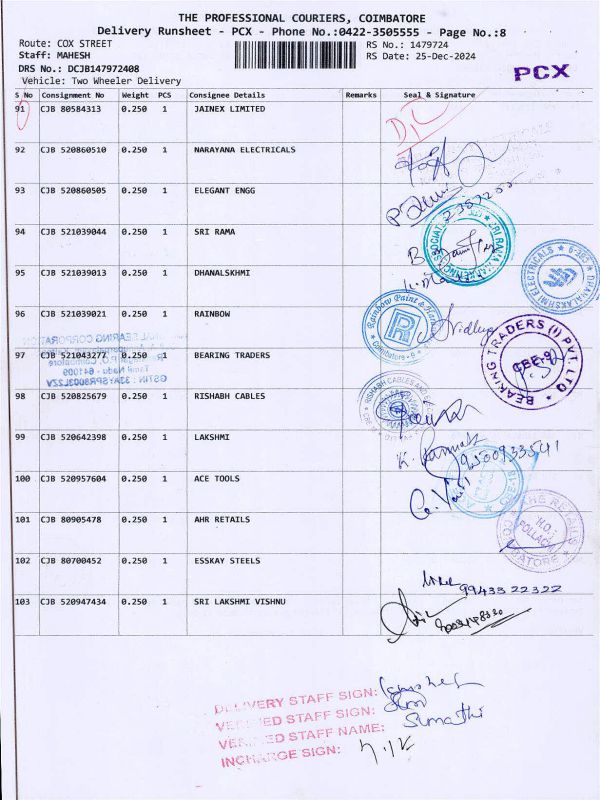 THE PROFESSIONAL COURIERS, COIMBATORE
Delivery Runsheet - PCX - Phone No.:0422-3505555 - Page No.:8
Route: COX STREET RS No.: 1479724
Staff: MAHESH RS Date: 25-Dec-2024
DRS No.: DCJB147972408
Vehicle: Two Wheeler Delivery
PCX
S No Consignment No Weight PCS Consignee Details Remarks Seal & Signature
91 CJB 80584313 0.250 1 JAINEX LIMITED
92 CJB 520860510 0.250 1 NARAYANA ELECTRICALS
93 CJB 520860505 0.250 1 ELEGANT ENGG
94 CJB 521039044 0.250 1 SRI RAMA
95 CJB 521039013 0.250 1 DHANALSKHMI
DHANALAKSHMI ELECTRICALS
96 CJB 521039021 0.250 1 RAINBOW
Rainbow Paint &
Coimbatore - 9
97 CJB 521043277 0.250 1 BEARING TRADERS
BEARING TRADERS (I) PVT. LTD
CBE-9
98 CJB 520825679 0.250 1 RISHABH CABLES
RISHABH CABLES AND
99 CJB 520642398 0.250 1 LAKSHMI
9500933541
100 CJB 520957604 0.250 1 ACE TOOLS
101 CJB 80905478 0.250 1 AHR RETAILS
H.O.:
POLLACHI
102 CJB 80700452 0.250 1 ESSKAY STEELS
9943322322
103 CJB 520947434 0.250 1 SRI LAKSHMI VISHNU
DELIVERY STAFF SIGN:
VERIFIED STAFF SIGN:
VERIFIED STAFF NAME: Sumathi
INCHARGE SIGN: